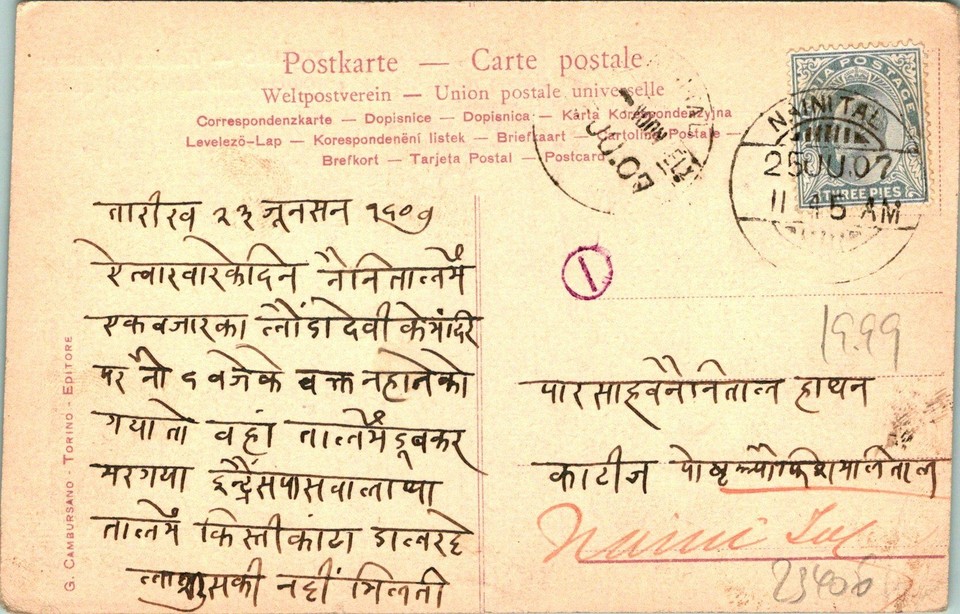 Postkarte — Carte postale
Weltpostverein — Union postale universelle
Correspondenzkarte — Dopisnice — Dopisnica — Karta Korespondenzyjna
Levelezö-Lap — Korespondenčni listek — Briefkaart — Cartolina Postale —
Brefkort — Tarjeta Postal — Postcard
INDIA POSTAGE
THREE PIES
NAINI TAL
25 JU.07
11 45 AM
JU.07
तारीख २३ जून सन १९०७
ऐत्वार वार के दिन नैनिताल में
एक बजार का लौंडा देवी के मंदिर
पर नौ ९ बजे के वक्त नहाने को
गया तो वहां ताल में डूब कर
मर गया पास वाला था
ताल में किस्ती कांटा डाल रहे
लाश उसकी नहीं मिलती
1
1999
पार साहब नैनिताल हाथन
काटीज
Naini Tal
25406
G. CAMBURSANO - TORINO - EDITORE